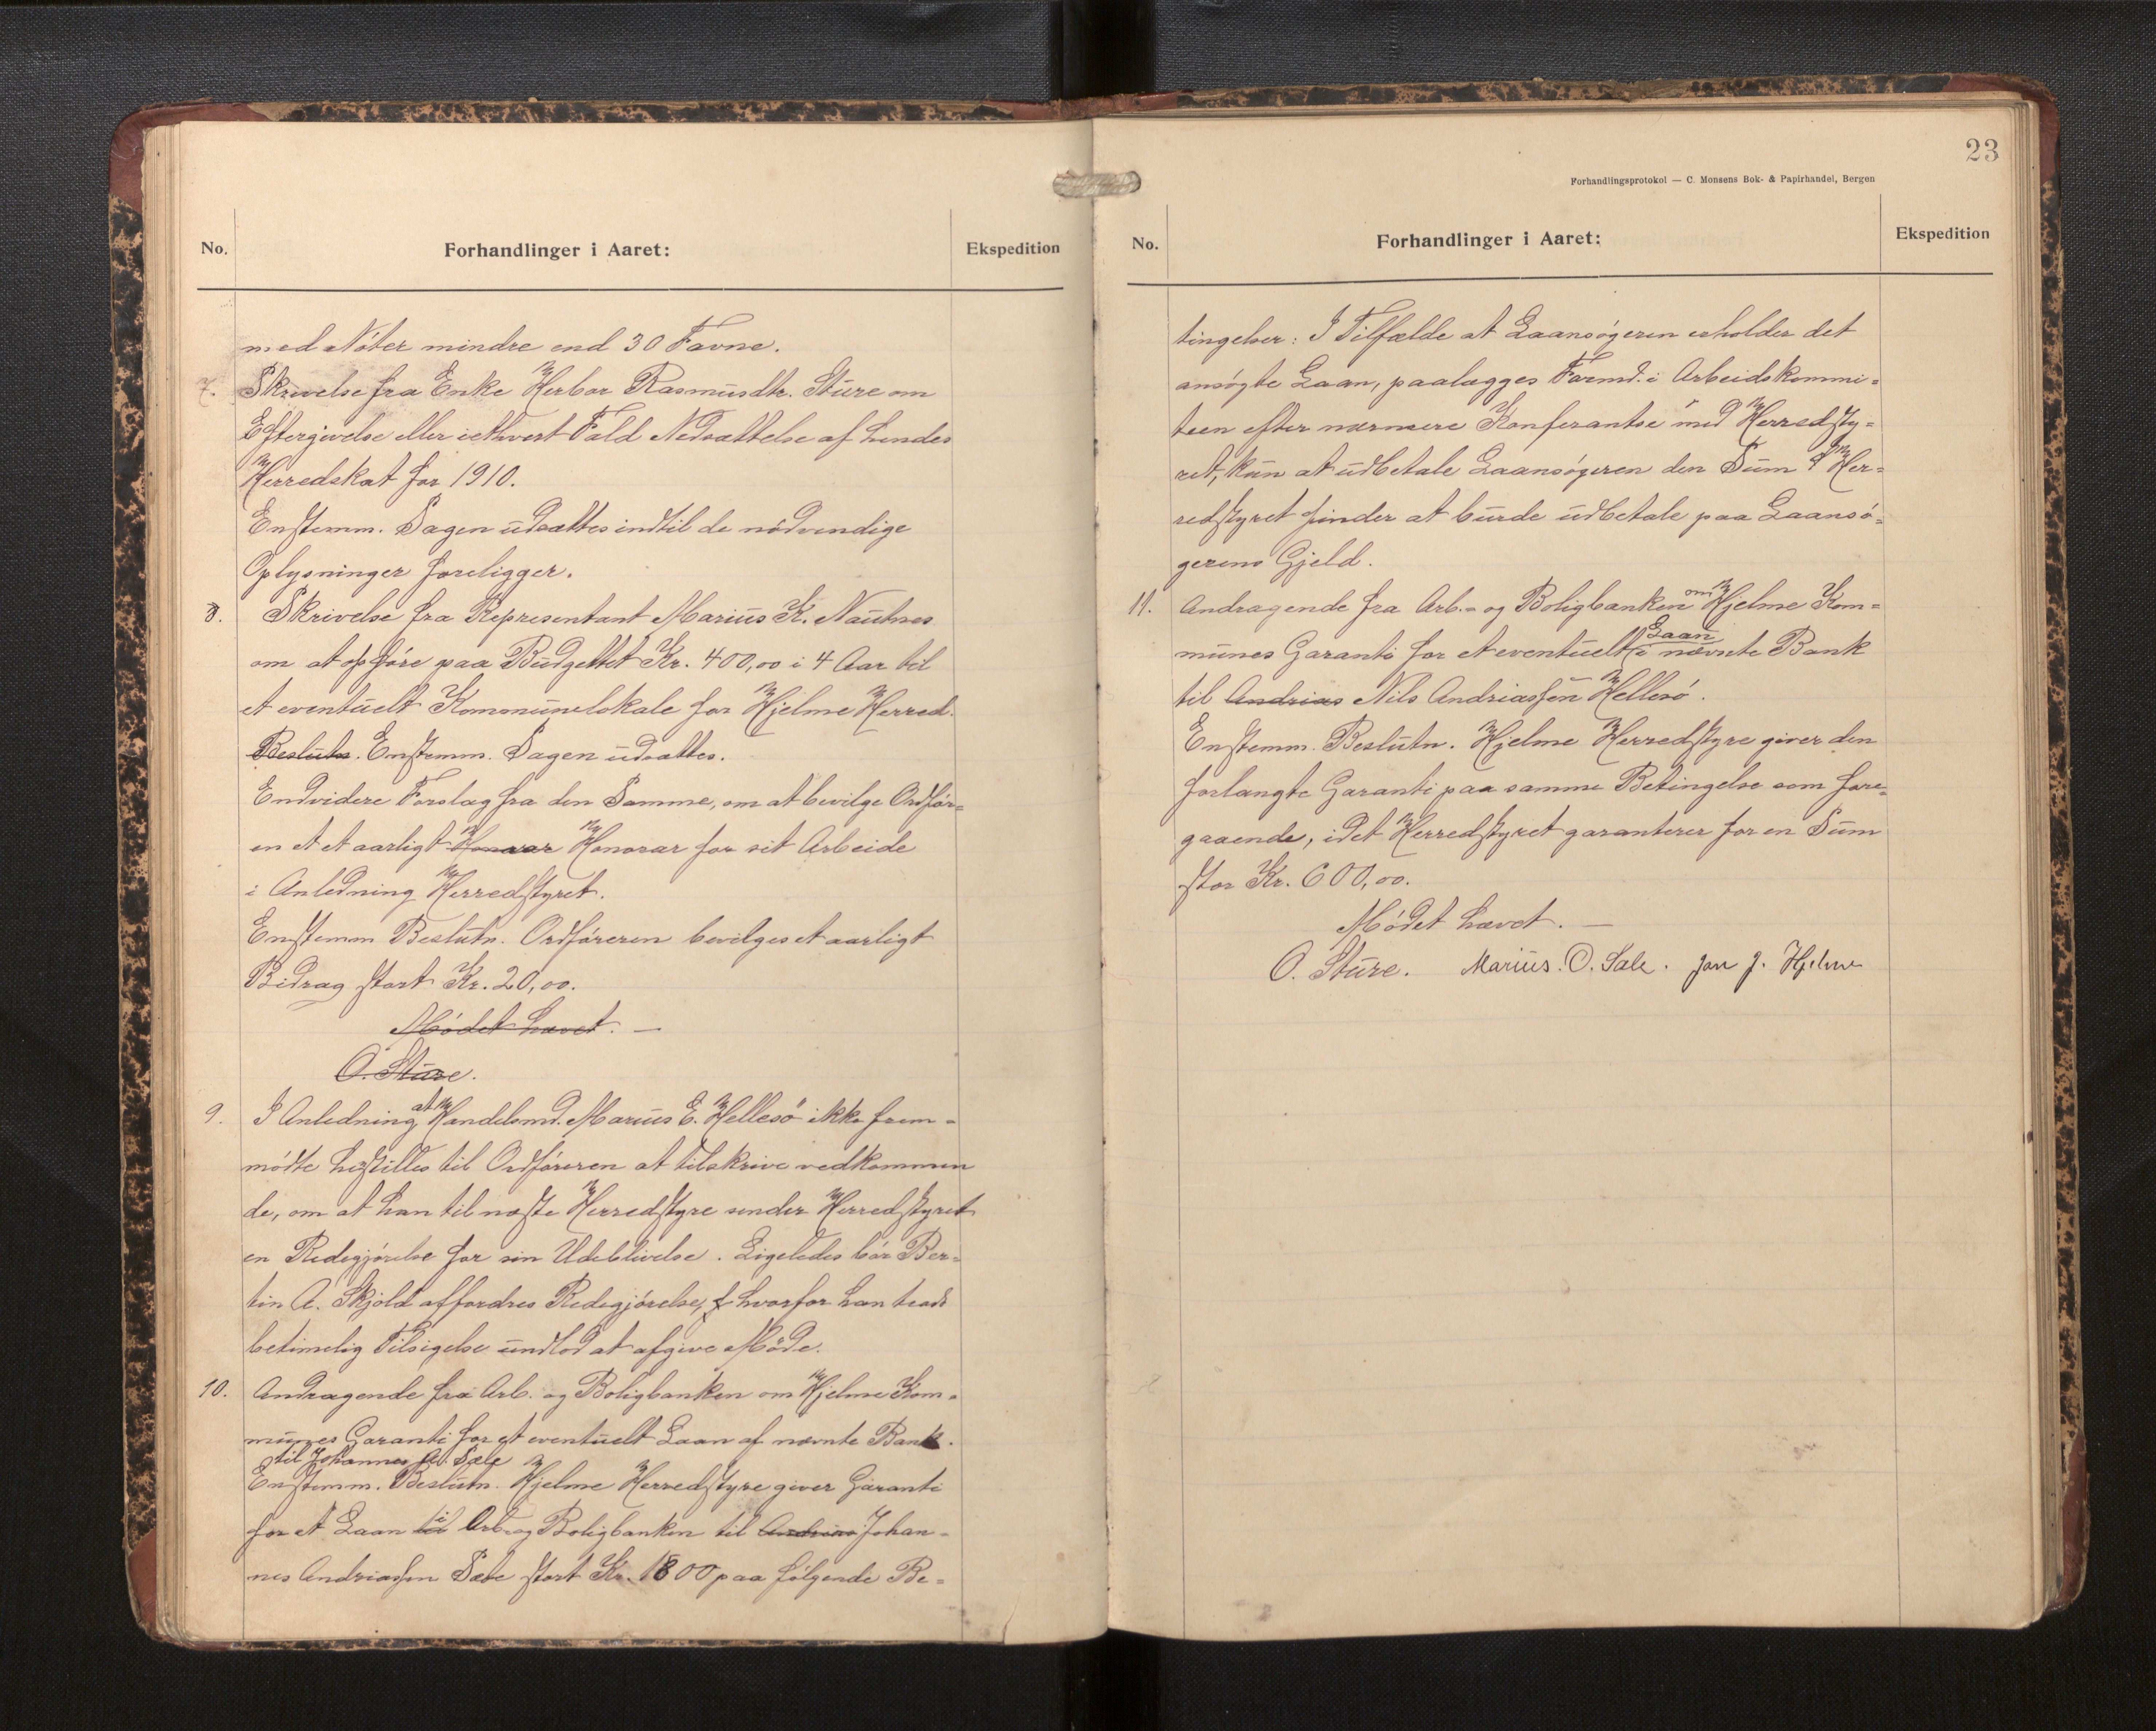 No.
Forhandlinger i Aaret:
Ekspedition
med Nóter mindre end 30 Favne.
7. Skrivelse fra Enke Herbor Rasmusdtr. Sture om
Eftergivelse eller iethvert Fald Nedsættelse af hendes
Herredskat for 1910.
Enstemm. Sagen udsættes indtil de nödvendige
Oplysninger foreligger.
8. Skrivelse fra Repræsentant Marius K. Nautnes
om at opføre paa Budgettet Kr. 400,00 i 4 Aar til
et eventuelt Kommunelokale for Hjelme Herred.
Beslutn. Enstemm. Sagen udsættes.
Endvidere Forslag fra den Samme, om at bevilge Ordför=
en et et aarligt Honorar Honorar for sit Arbeide
i Anledning Herredstyret.
Enstemm Beslutn. Ordføreren bevilges et aarligt
Bidrag stort Kr. 20,00.
Mödet hævet. —
O. Sture.
9. I Anledning at Handelsmd. Marius E. Hellesö ikke frem=
mödte henstilles til Ordføreren at tilskrive vedkommen
de, om at han til næste Herredstyre sender Herredstyret
en Redegjörelse for sin Udeblivelse. Ligeledes bör Ber=
tin A. Skjold affordres Redegjörelse, f hvorfor han trods
betimelig Tilsigelse undlod at afgive Möde.
10. Andragende fra Arb. og Boligbanken om Hjelme Kom=
munes Garanti for et eventuelt Laan af nævnte Bank.
til Johannes A. Sæle
Enstemm. Beslutn. Hjelme Herredstyre giver Garanti
for et Laan til i Arb. og Boligbanken til Andrias Johan=
nes Andriassen Sæle stort Kr. 1800 paa følgende Be=
23
Forhandlingsprotokol — C. Monsens Bok- & Papirhandel, Bergen
No.
Forhandlinger i Aaret:
Ekspedition
tingelser: I Tilfælde at Laansøgeren erholder det
ansøgte Laan, paalægges Formd. i Arbeidskommi=
teen efter nærmere Konferantse med Herredsty=
ret, kun at udbetale Laansøgeren den Sum Her=
redstyret finder at burde udbetale paa Laansö=
gerens Gjeld.
11. Andragende fra Arb.- og Boligbanken om Hjelme Kom=
munes Garanti for et eventuelt Laan i nævnte Bank
til Andrias Nils Andriassen Hellesö.
Enstemm. Beslutn. Hjelme Herredstyre giver den
forlangte Garanti paa samme Betingelse som fore=
gaaende, idet Herredstyret garanterer for en Sum
stor Kr. 600,00.
Mödet hævet. —
O. Sture. Marius. O. Sæle. Jan J. Hjelme